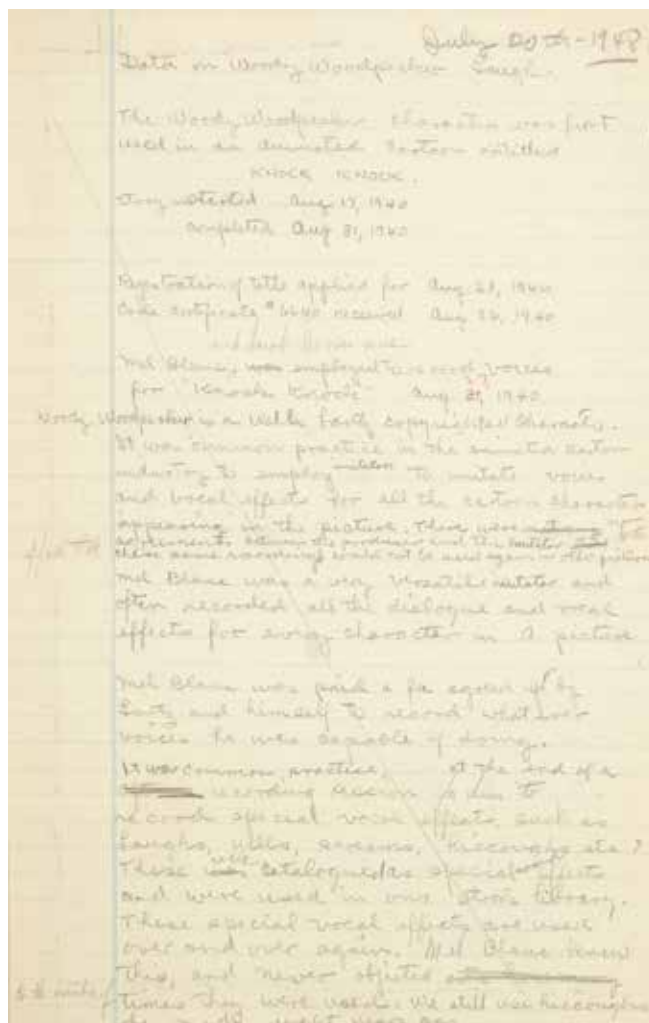 July 20th - 1948
Data on Woody Woodpecker Laugh.
The Woody Woodpecker character was first
used in an animated cartoon entitled
KNOCK KNOCK.
Story started Aug 17, 1940
completed Aug 31, 1940
Registration of title applied for Aug 21, 1940
Code certificate # 6640 received Aug 26, 1940
Mel Blanc, was employed to record voices
for "Knock Knock" Aug 1940
Woody Woodpecker is a Walter Lantz copyrighted character.
It was common practice in the animated cartoon
industry to employ imitators to imitate voices
and vocal effects for all the cartoon characters
appearing in the picture. There were
agreements between the producer and the imitator
these same recordings could not be used again in other pictures
Mel Blanc was a very versatile imitator and
often recorded all the dialogue and vocal
effects for every character in a picture
Mel Blanc was paid a fee agreed by
Lantz and himself to record whatever
voices he was capable of doing.
It was common practice, at the end of a
recording session to
record special voice effects, such as
laughs, yells, screams, hiccoughs etc.
These were catalogued as special effects
and were used in our stock library.
These special vocal effects are used
over and over again. Mel Blanc knew
this, and never objected
times they were used. We still use hiccoughs